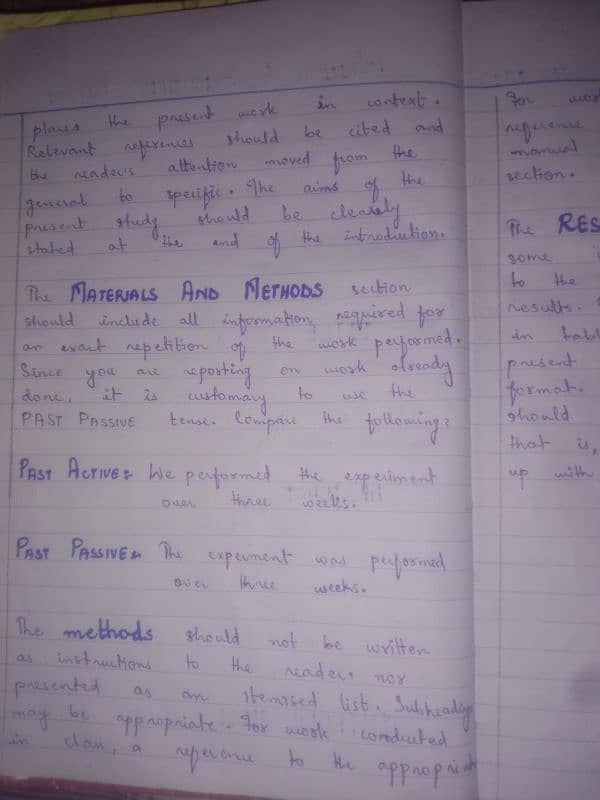 places the present work in context.
Relevant references should be cited and
the readers attention moved from the
general to specific. The aims of the
present study should be clearly
stated at the end of the introduction.
The MATERIALS AND METHODS section
should include all information, required for
an exact repetition of the work performed.
Since you are reporting on work already
done, it is customary to use the
PAST PASSIVE tense. Compare the following:
PAST ACTIVE:- We performed the experiment
over three weeks.
PAST PASSIVE:- The experiment was performed
over three weeks.
The methods should not be written
as instructions to the reader, nor
presented as an itemised list. Subheading
may be appropriate. For work conducted
in class, a reference to the appropriat
For wor
reference
manual
section.
The RES
some
to the
results.
in tabl
present
format.
should
that is,
up with